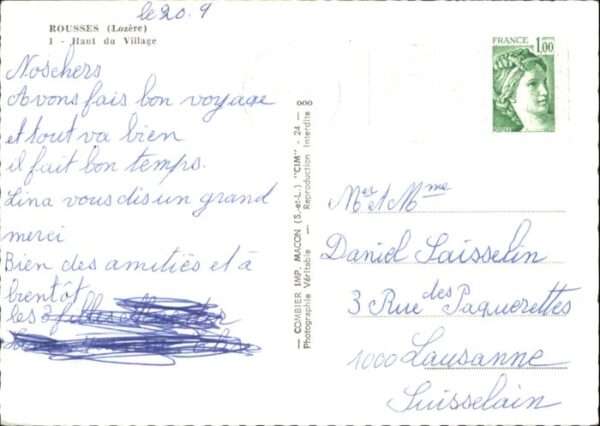 le 20.9
ROUSSES (Lozère)
1 - Haut du Village
Nos chers
Avons fais bon voyage
et tout va bien
il fait bon temps.
Lina vous dis un grand
merci
Bien des amitiés et à
bientôt
les
COMBIER IMP. MACON (S.-et-L.) "CIM" - 24 - 000
Photographie Véritable - Reproduction Interdite
FRANCE
1,00
Mer et Mme
Daniel Laisselin
3 Rue des Paquerettes
1000 Lausanne
Suisselain